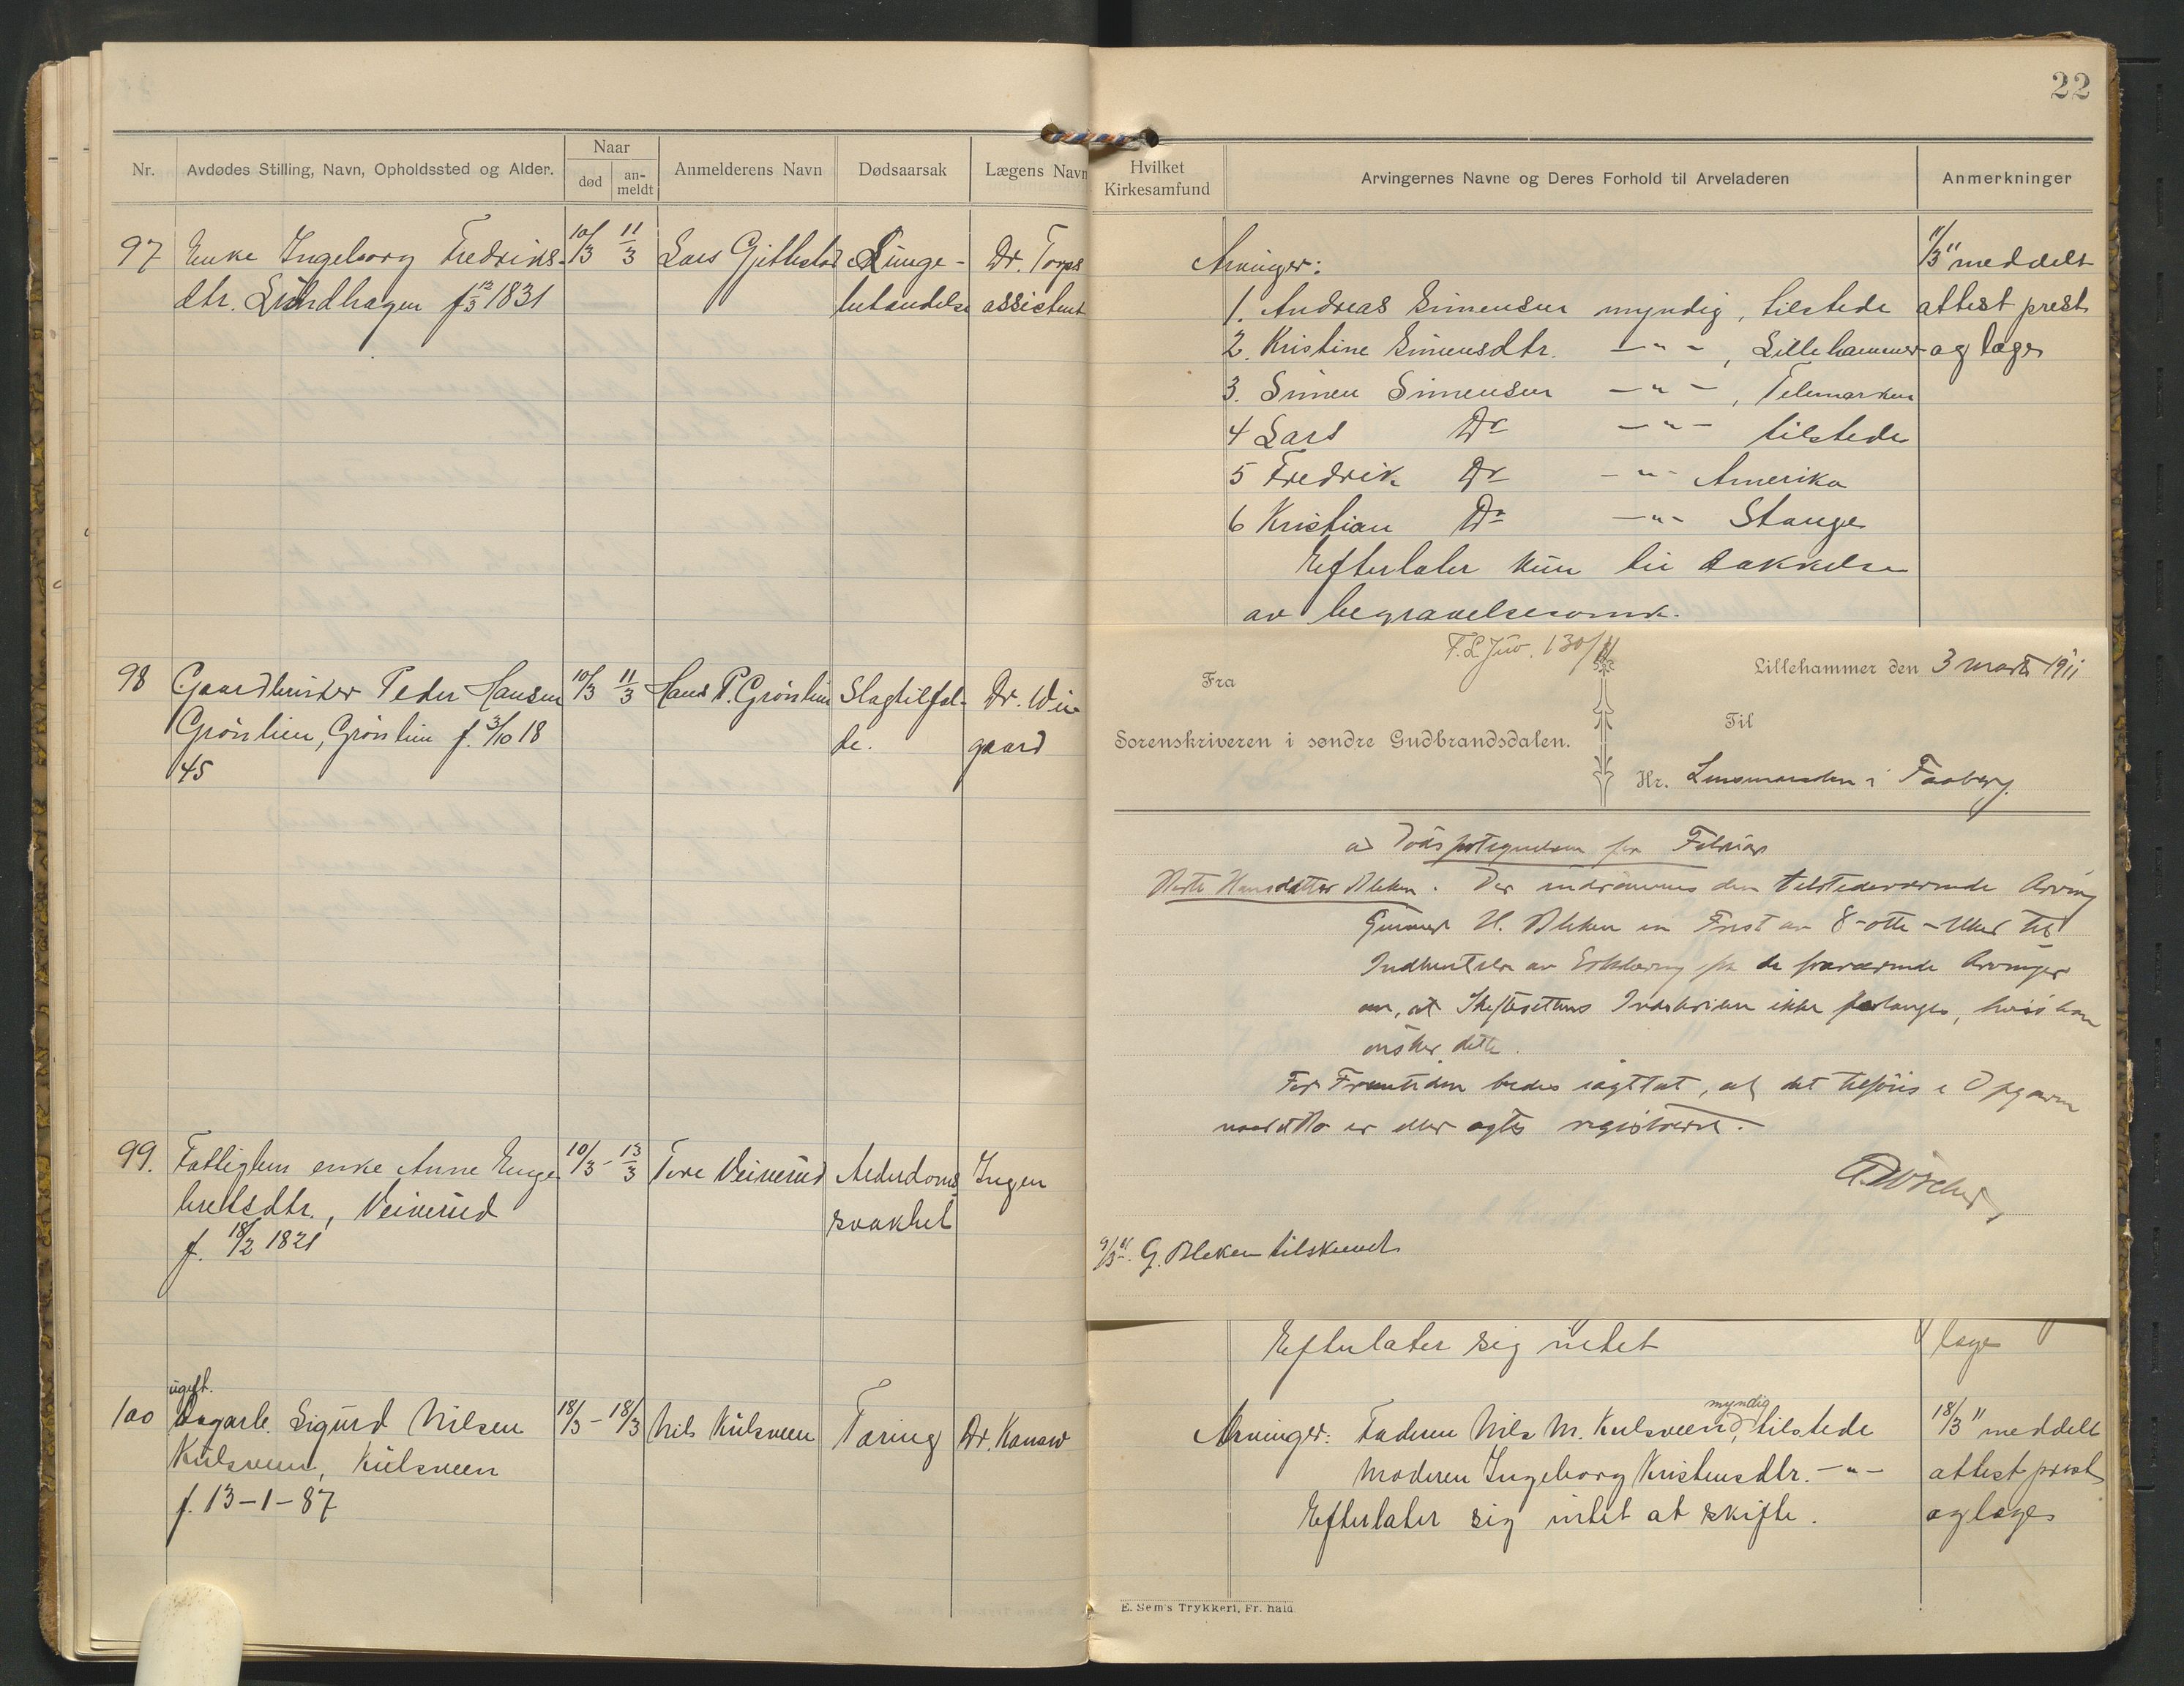 22
Nr. Avdødes Stilling, Navn, Opholdssted og Alder. Naar død an-meldt Anmelderens Navn Dødsaarsak Lægens Navn
97 Enke Ingeborg Fredriks- 10/3 11/3 Lars Gjithestad Lunge- Dr. Torps
dtr. Lundhagen f 12/3 1831 betændelse assistent
98 Gaardbruker Peder Hansen 10/3 11/3 Hans P. Grønlien Slagtilfæl- Dr. Wii-
Grønlien, Grønlien f. 3/10 18 de. gaard
45
99. Fattiglem enke Anne Enge 10/3 - 13/3 Tore Veiverud Alderdoms Ingen
bretsdtr., Veiverud svakhet
f. 18/2 1821
ugift.
100 Dagarb. Sigurd Nilsen 18/3 - 18/3 Nils Kulsveen Tæring Dr. Kanow
Kulsveen, Kulsveen
f. 13-1-87
Hvilket Kirkesamfund Arvingernes Navne og Deres Forhold til Arveladeren Anmerkninger
Arvinger: 11/3 11 meddelt
1. Andreas Simensen myndig, tilstede attest prest
2. Kristine Simensdtr. — " — , Lillehammer og læge
3. Simen Simensen — " — , Telemarken
4 Lars Do — " — tilstede
5 Fredrik Do — " — Amerika
6 Kristian Do — " — Stange
Efterlater kun til dækkelse
av begravelsesomk.
130/11
Fra Lillehammer den 3 marts 1911
Sorenskriveren i søndre Gudbrandsdalen. Til
Hr. Lensmanden i Faaberg.
ad Dødsfortegnelsen for Februar
Hansdatter Bleken. Der indrømmes den tilstedeværende Arving
Gunnar H. Bleken en Frist av 8-otte-Uker til
Indhentelse av Erklæring fra de fraværende Arvinger
om, at Skifterettens Indskriden ikke forlanges, hvis han
ønsker dette.
For Fremtiden bedes iagttat, at det tilføies i Opgaven
naar et Bo er eller agtes registreret.
9/3 11. G. Bleken tilskrevet
Efterlater sig intet læge
myndig
Arvinger: Faderen Nils M. Kulsveen, tilstede 18/3 11 meddelt
Moderen Ingeborg Kristensdtr. — " — attest prest
Efterlater sig intet at skifte. og læge
E. Sem's Trykkeri, Fr. hald